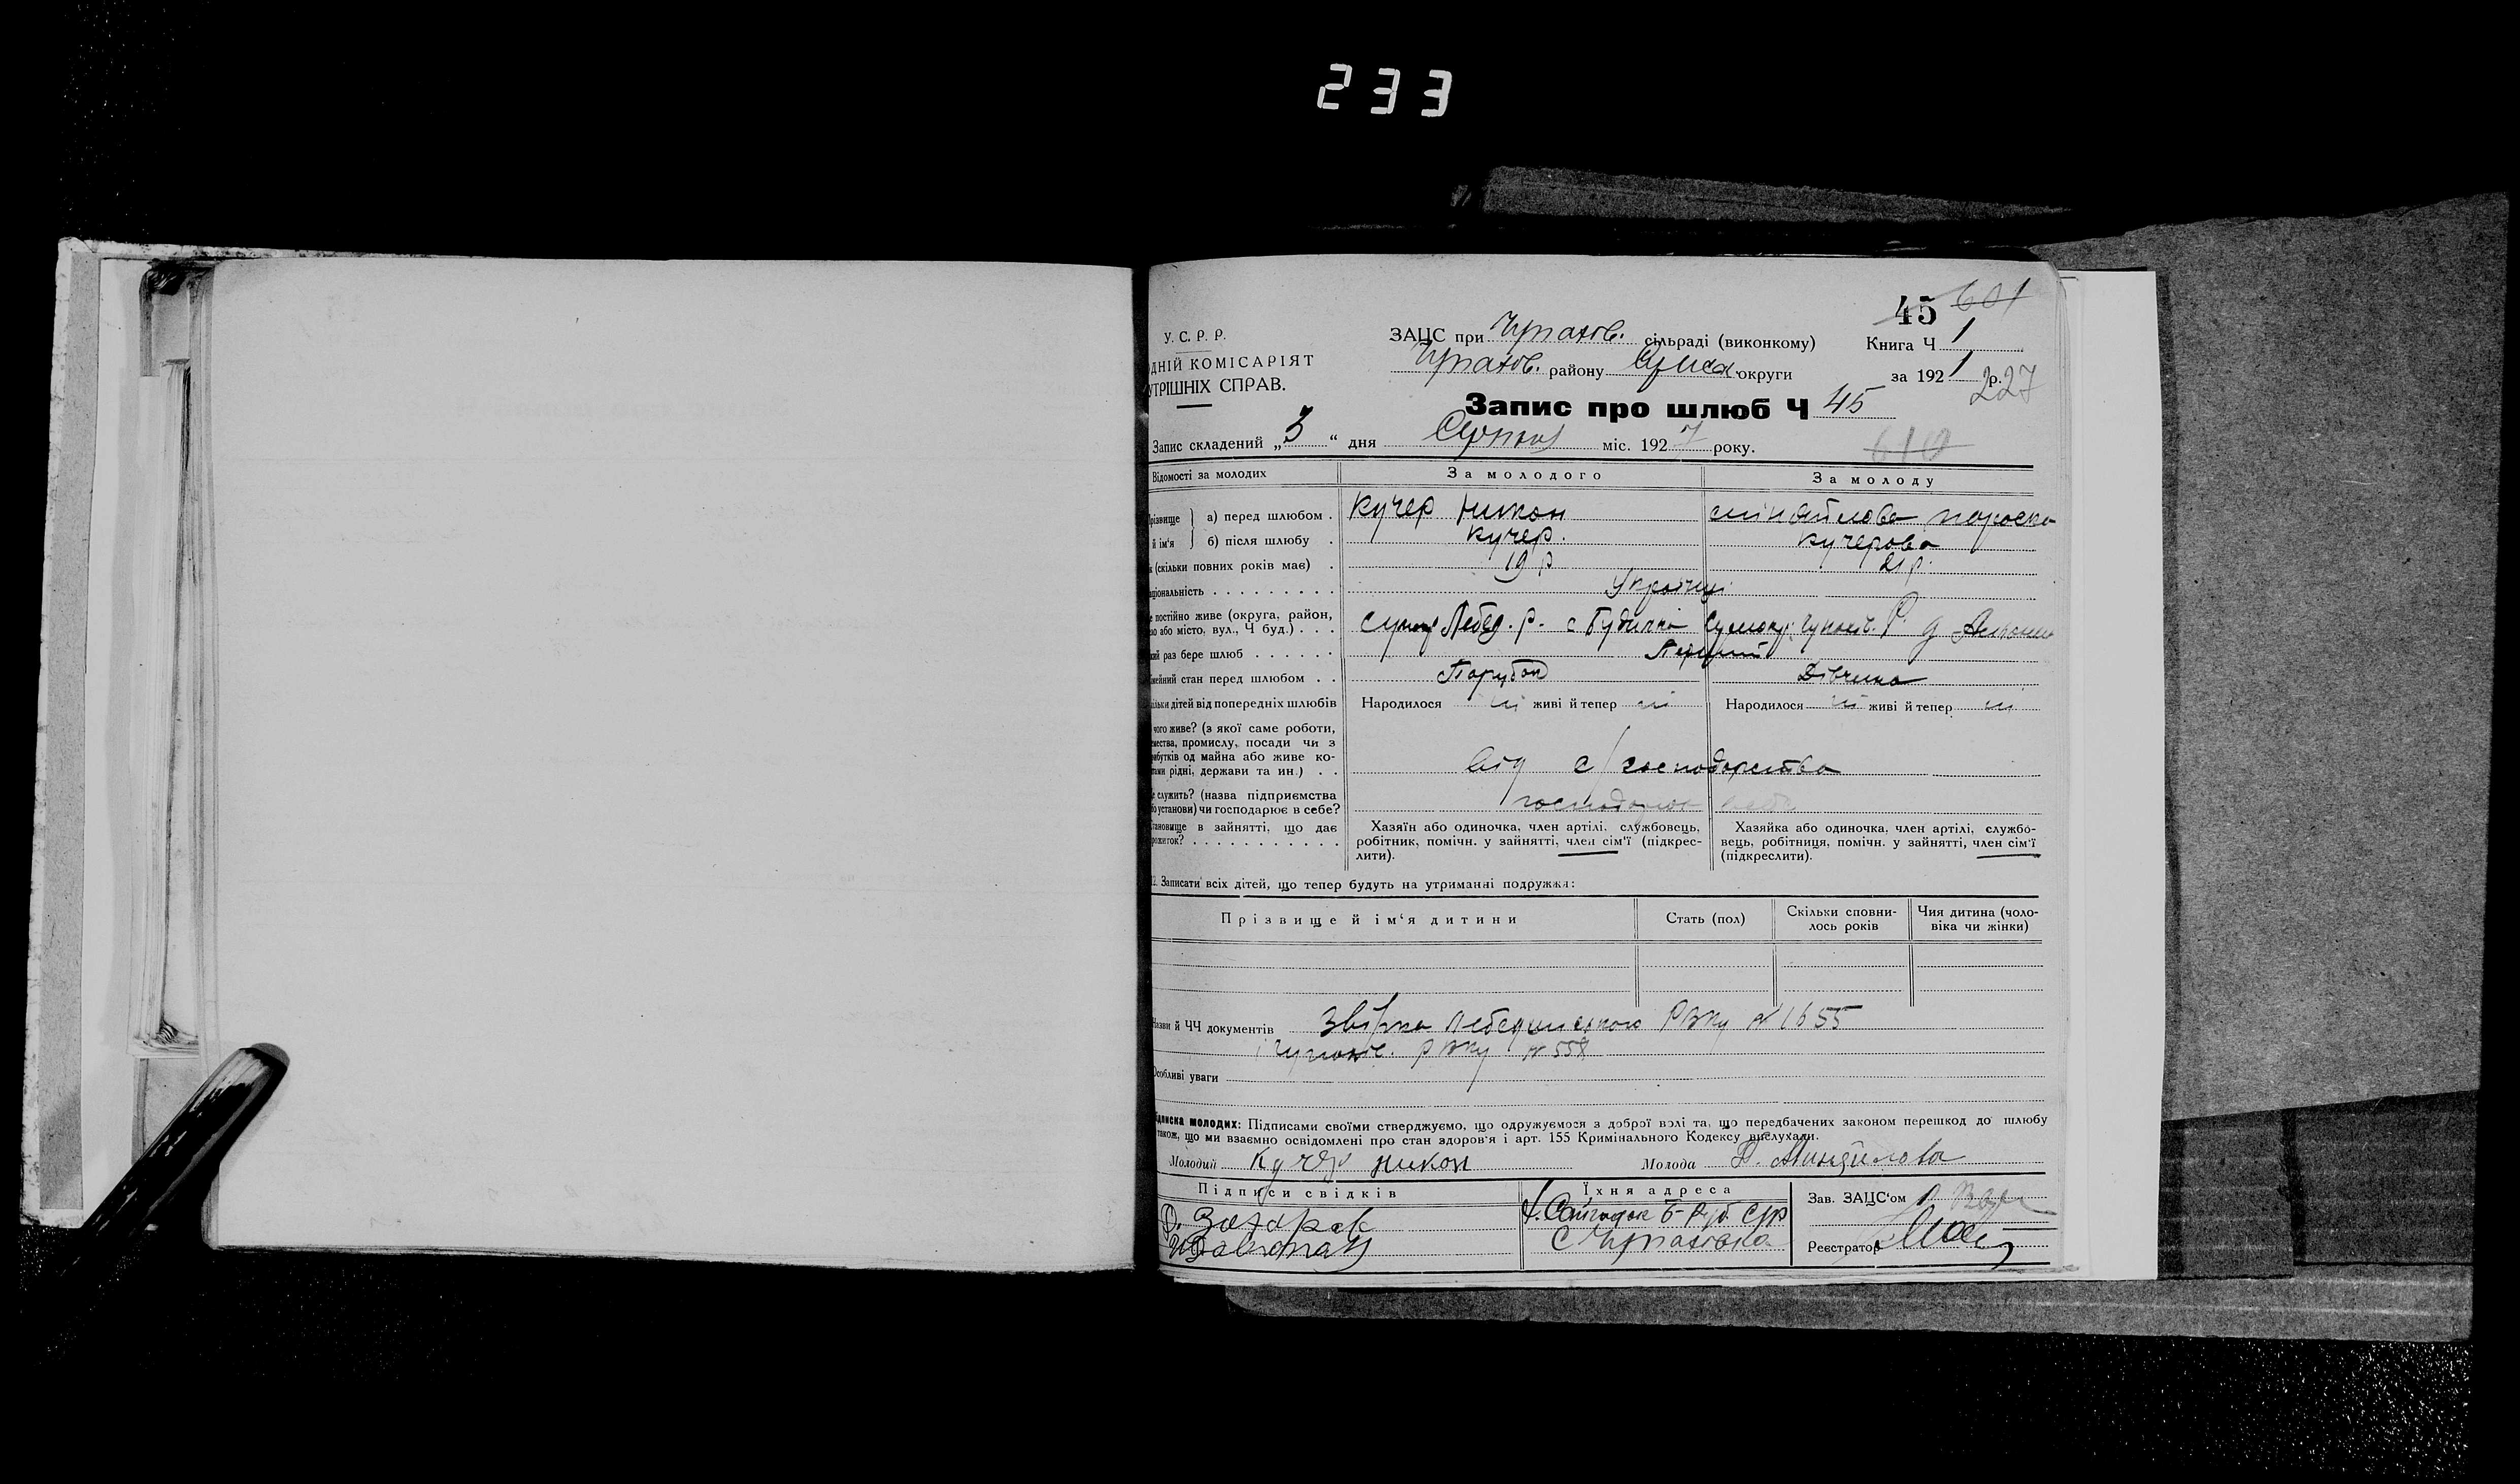 233
45 601
У. С. Р. Р.
ЗАЦС при Чупахів. сільраді (виконкому) Книга Ч 1
ДНІЙ КОМІСАРІЯТ
Чупахів. району Сумск. округи за 192 р. 227
УТРІШНІХ СПРАВ.
Запис про шлюб Ч 45
Запис складений „3“ дня Серпня міс. 1927 року. 610
Відомості за молодих За молодого За молоду
різвище й ім'я а) перед шлюбом . Кучер Никон
б) після шлюбу . Кучер. Кучерова
к (скільки повних років має) . 19 р 21 р.
аціональність . . . . . . . . . Українці
е постійно живе (округа, район, ло або місто, вул., Ч буд.) . . . Лебед. р. с Будилка
кий раз бере шлюб . . . . . . Перший
імейний стан перед шлюбом . . Парубок Дівчина
кільки дітей від попередніх шлюбів Народилося ні живі й тепер ні Народилося ні живі й тепер ні
чого живе? (з якої саме роботи,
емества, промислу, посади чи з
рибутків од майна або живе ко-
тами рідні, держави та ин.) . . від с/господарства
е служить? (назва підприємства
бо установи) чи господарює в себе?
тановище в зайнятті, що дає
рожиток? . . . . . . . . . . .
Хазяїн або одиночка, член артілі, службовець,
робітник, помічн. у зайнятті, член сім'ї (підкрес-
лити).
Хазяйка або одиночка, член артілі, службо-
вець, робітниця, помічн. у зайнятті, член сім'ї
(підкреслити).
12. Записати всіх дітей, що тепер будуть на утриманні подружжя:
Прізвище й ім'я дитини Стать (пол) Скільки сповни-
лось років Чия дитина (чоло-
віка чи жінки)
Назви й ЧЧ документів Звірка Лебединського РВКу № 1655
і РВКу № 558
Особливі уваги
ідписка молодих: Підписами своїми стверджуємо, що одружуємося з доброї волі та, що передбачених законом перешкод до шлюбу
також, що ми взаємно освідомлені про стан здоров'я і арт. 155 Кримінального Кодексу вислухали.
Молодий Кучер Никон Молода
Підписи свідків Їхня адреса Зав. ЗАЦС'ом
с Чупахівка Реєстратор